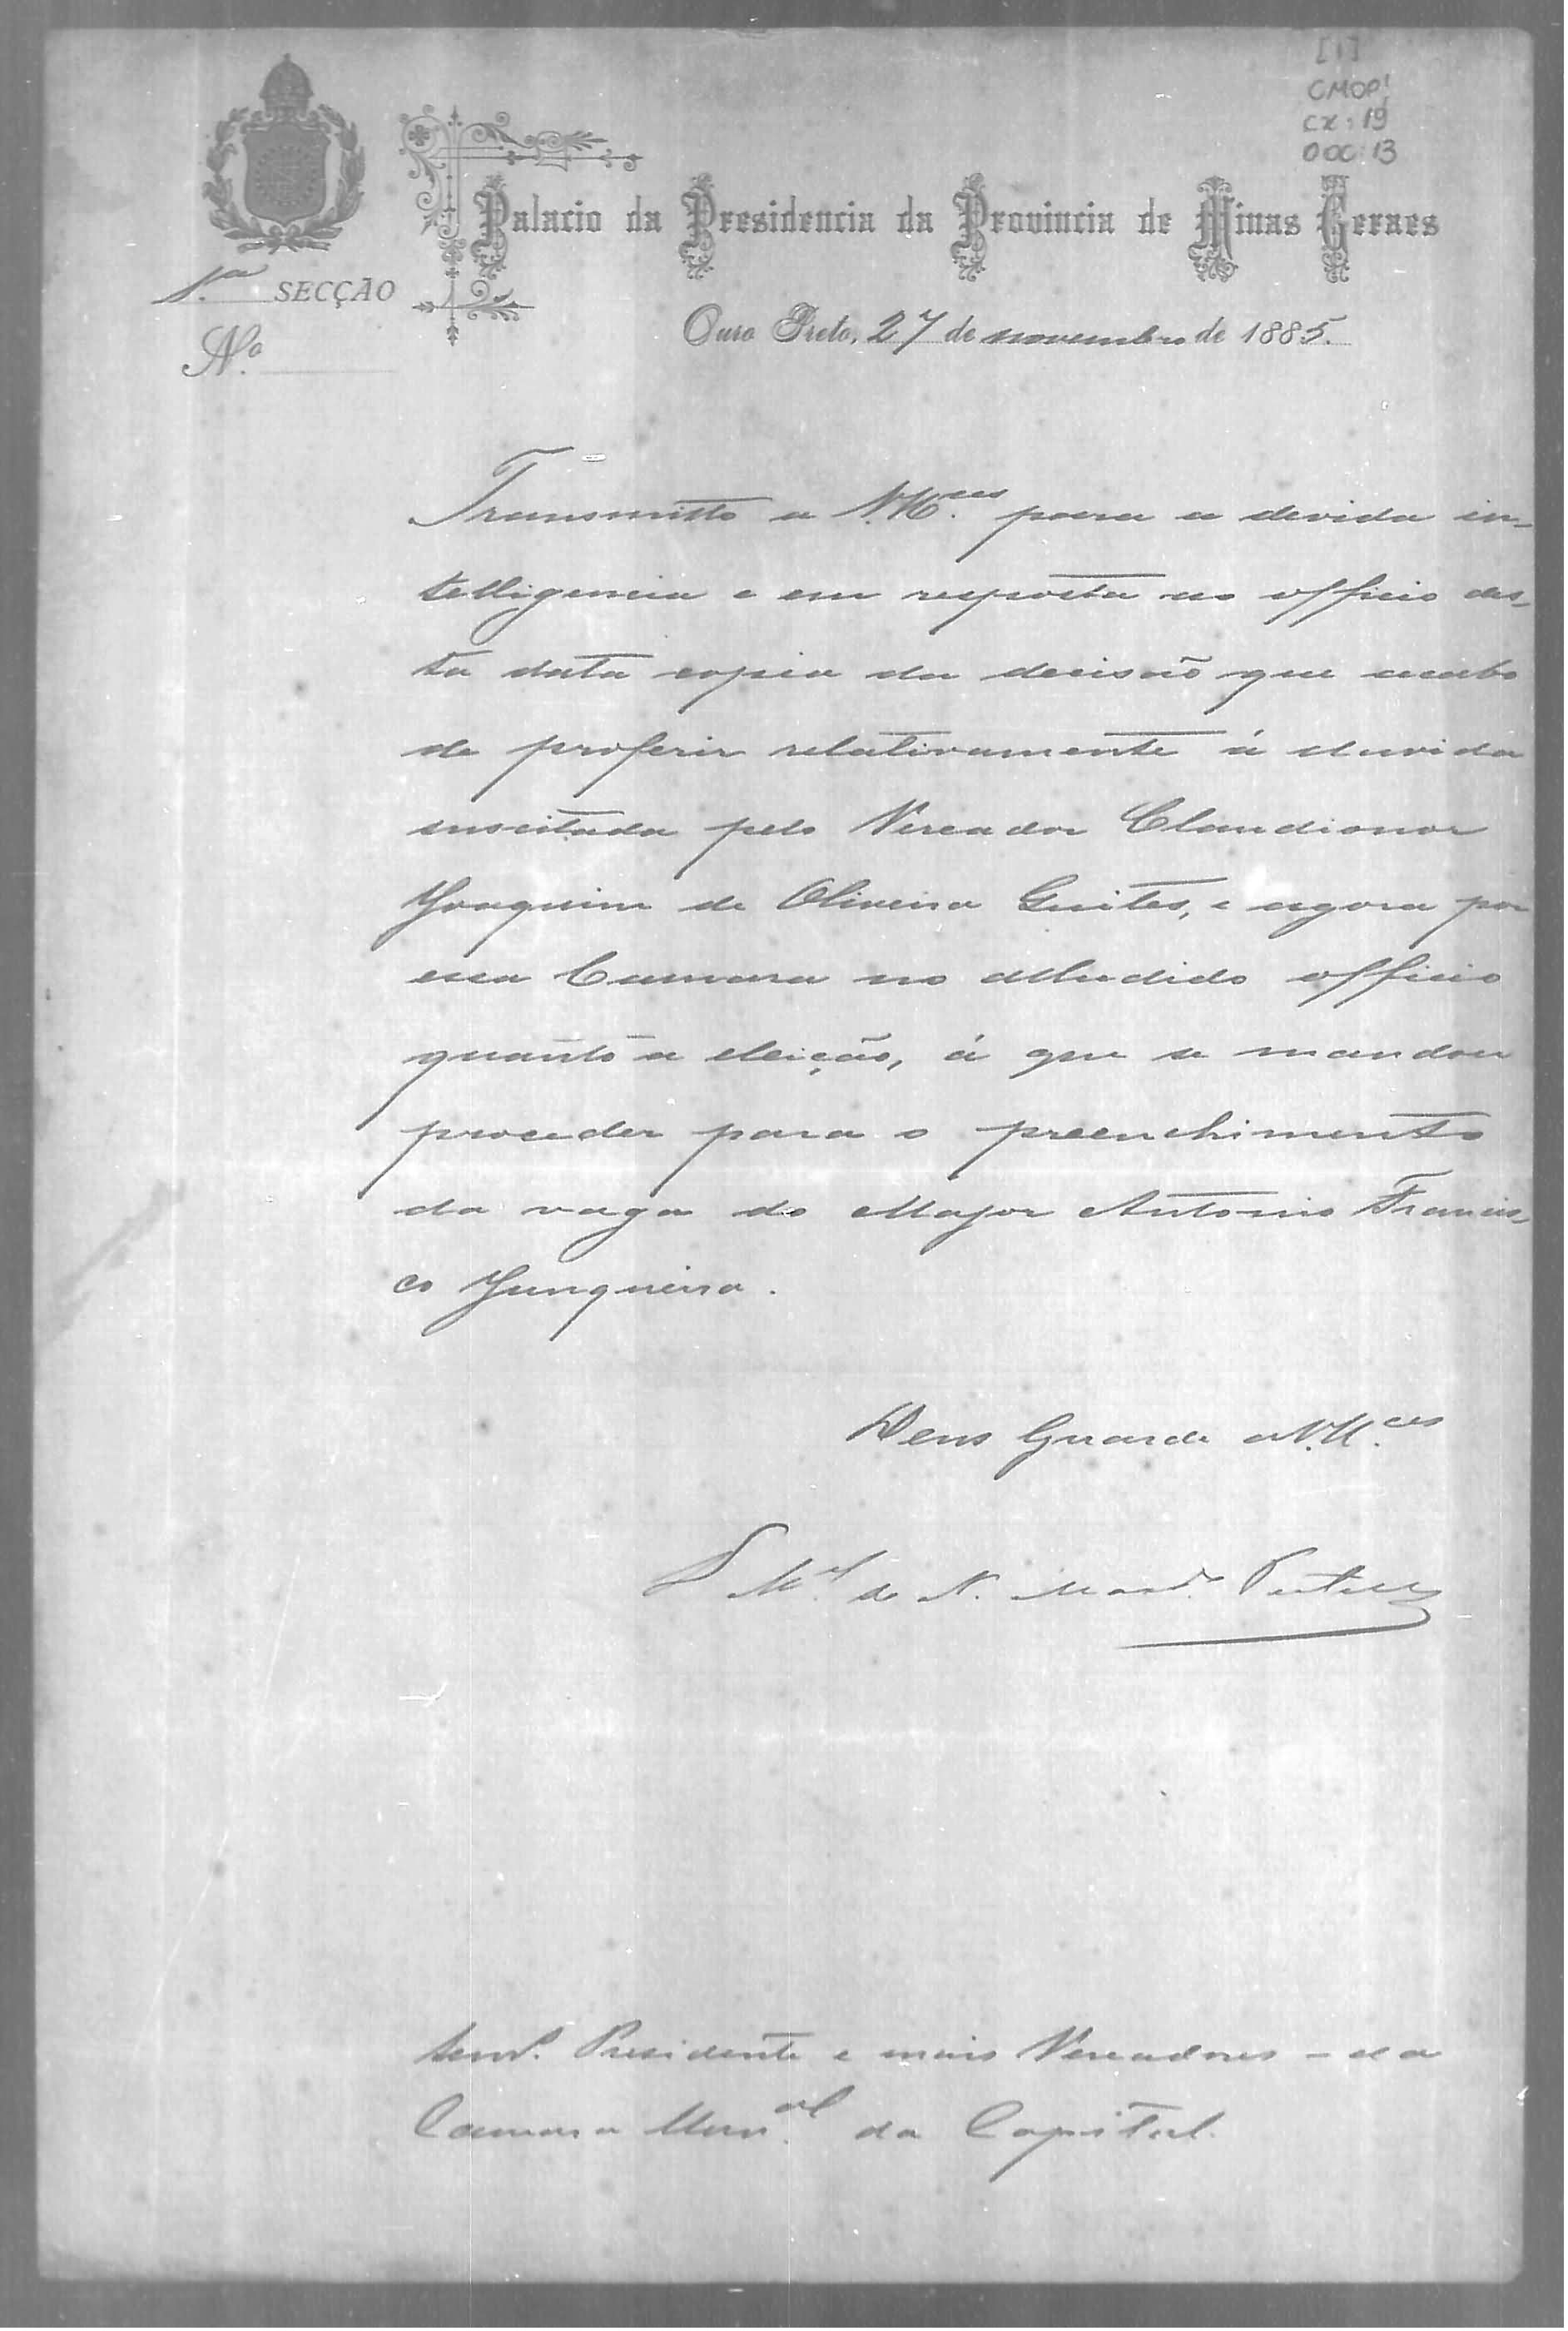 [1]
CMOP!
CX: 19
DOC: 13
Palacio da Presidencia da Provincia de Minas Geraes
1.ª SECÇÃO
N.º
Ouro Preto, 27 de novembro de 1885.
Transmitto a V.M.ces para a devida in-
telligencia e em resposta ao officio des-
ta data copia da decisão que acabo
de proferir relativamente á duvida
suscitada pelo Vereador Claudionor
Joaquim de Oliveira Quites, e agora por
essa Camara no alludido officio
quanto a eleição, á que se mandou
proceder para o preenchimento
da vaga do Major Antonio Francis-
co Junqueira.
Deus Guarde a V.M.ces
M.el de N. Mach.do Portella
Senr. Presidente e mais Vereadores - da
Camara Mun.al da Capital.